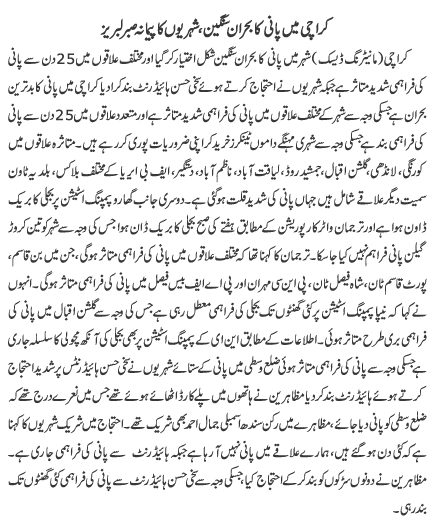 کراچی میں پانی کا بحران سنگین، شہریوں کا پیمانہ صبر لبریز
کراچی (مانیٹرنگ ڈیسک) شہر میں پانی کا بحران سنگین شکل اختیار کر گیا اور مختلف علاقوں میں 25 دن سے پانی
کی فراہمی شدید متاثر ہے جبکہ شہریوں نے احتجاج کرتے ہوئے سخی حسن ہائیڈرنٹ بند کرا دیا کراچی میں پانی کا بدترین
بحران ہے جسکی وجہ سے شہر کے مختلف علاقوں میں پانی کی فراہمی شدید متاثر ہے اور متعدد علاقوں میں 25 دن سے پانی
کی فراہمی بند ہے جسکی وجہ سے شہری مہنگے داموں ٹینکرز خرید کر اپنی ضروریات پوری کر رہے ہیں۔ متاثرہ علاقوں میں
کورنگی، لانڈھی، گلشن اقبال، جمشید روڈ، لیاقت آباد، ناظم آباد، دستگیر، ایف بی ایریا کے مختلف بلاکس، بلدیہ ٹاون
سمیت دیگر علاقے شامل ہیں جہاں پانی کی شدید قلت ہوگئی ہے۔ دوسری جانب گھارو پمپنگ اسٹیشن پر بجلی کا بریک
ڈاون ہوا ہے اور ترجمان واٹر کارپوریشن کے مطابق ہفتے کی صبح بجلی کا بریک ڈاون ہوا جس کی وجہ سے شہر کو تین کروڑ
گیلن پانی فراہم نہیں کیا جاسکا۔ ترجمان کا کہنا تھا کہ مختلف علاقوں میں پانی کی فراہمی متاثر ہوگی، جن میں بن قاسم،
پورٹ قاسم ٹان، شاہ فیصل ٹان، پی این سی مہران اور پی اے ایف بیس فیصل میں پانی کی فراہمی متاثر ہوگی۔ انہوں
نے کہا کہ نیپا پمپنگ اسٹیشن پر کئی گھنٹوں تک بجلی کی فراہمی معطل رہی ہے جس کی وجہ سے گلشن اقبال میں پانی کی
فراہمی بری طرح متاثر ہوئی۔ اطلاعات کے مطابق این ای کے پمپنگ اسٹیشن پر بھی بجلی کی آنکھ مچولی کا سلسلہ جاری
ہے جسکی وجہ سے پانی کی فراہمی متاثر ہوئی ضلع وسطی میں پانی کے ستائے شہریوں نے سخی حسن ہائیڈرنٹس پر شدید احتجاج
کرتے ہوئے ہائیڈرنٹ بند کر دیا مظاہرین نے ہاتھوں میں پلے کارڈ اٹھائے ہوئے تھے جس میں نعرے درج تھے کہ
ضلع وسطی کو پانی دیا جائے، مظاہرے میں رکن سندھ اسمبلی جمال احمد بھی شریک تھے۔ احتجاج میں شریک شہریوں کا کہنا
ہے کہ کئی دن ہو گئے ہیں، ہمارے علاقے میں پانی نہیں آ رہا ہے جبکہ ہائیڈرنٹ سے پانی کی فراہمی جاری ہے۔
مظاہرین نے دونوں سڑکوں کو بند کر کے احتجاج کیا جسکی وجہ سے سخی حسن ہائیڈرنٹ سے پانی کی فراہمی کئی گھنٹوں تک
بند رہی۔